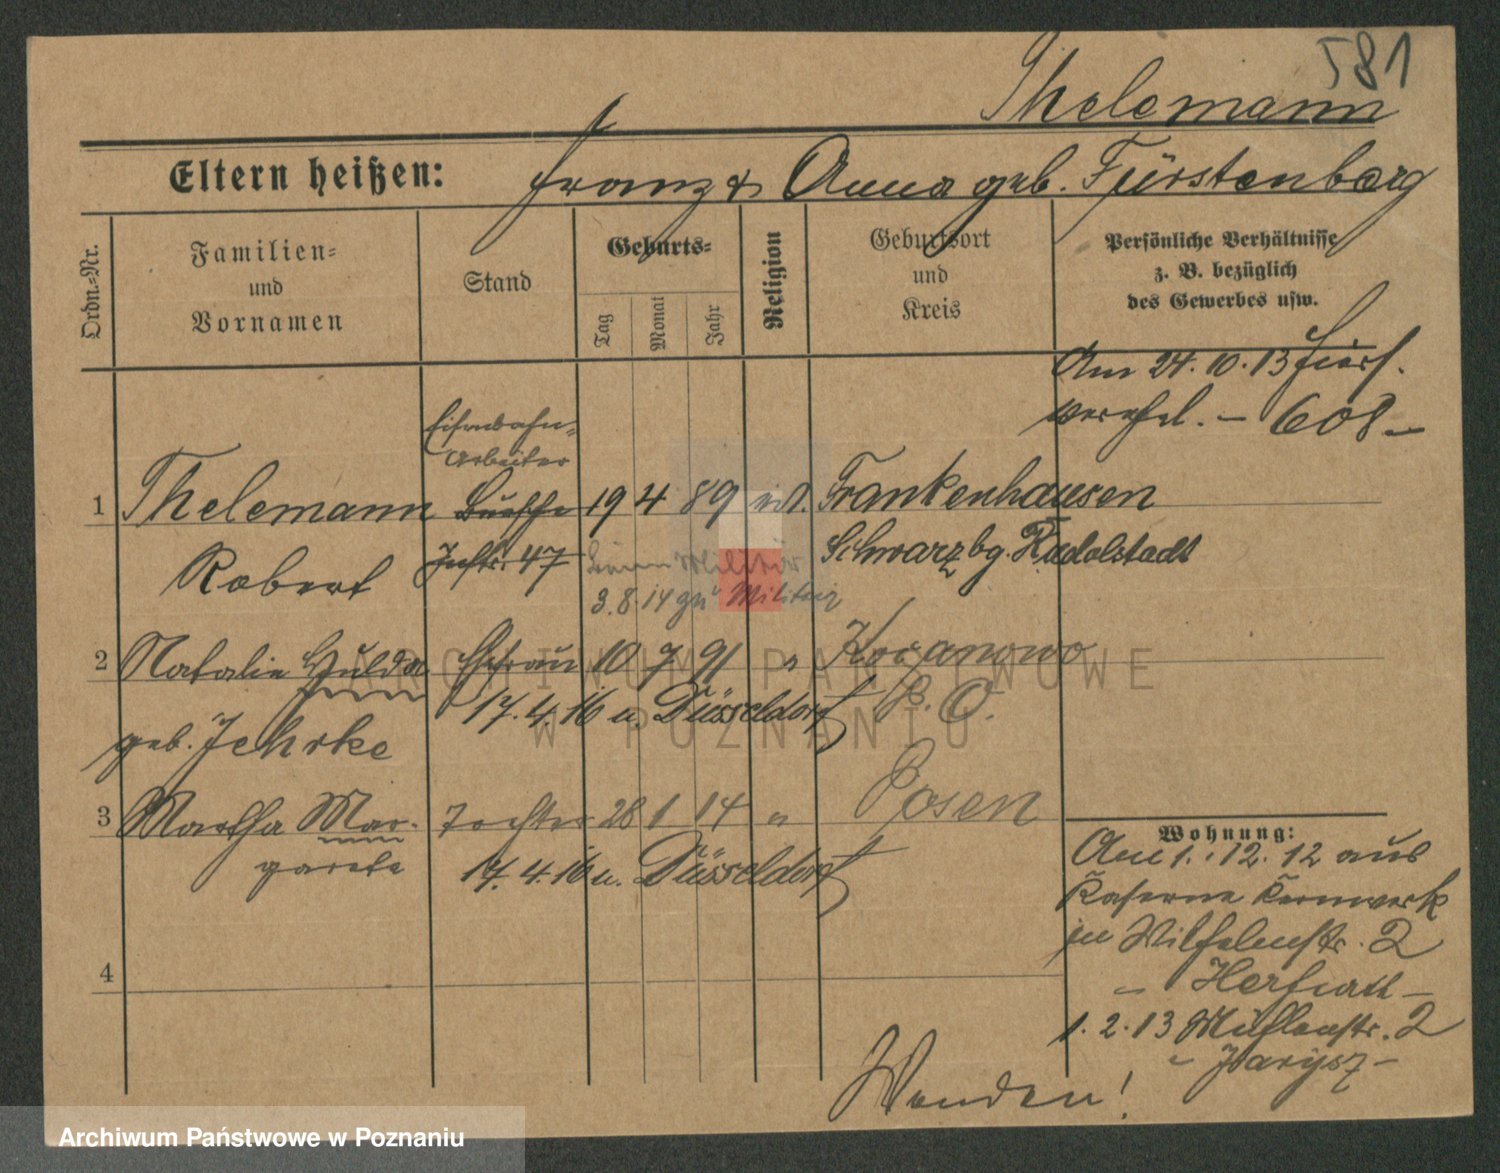 581
Thelemann
Eltern heißen: Franz & Anna geb. Fürstenberg
Ordn.=Nr.
Familien=
und
Vornamen
Stand
Geburts=
Tag
Monat
Jahr
Religion
Geburtsort
und
Kreis
Persönliche Verhältnisse
z. B. bezüglich
des Gewerbes usw.
Am 24.10.13 hier
verehel. – 608 –
Eisenbahn-
arbeiter
1 Thelemann 19 4 89 Frankenhausen
Robert Inftr. 47 Schwarzbg. Rudolstadt
beim Militär
3.8.14 zu Militär
2 Natalie Hulda Ehefrau 10 7 91 " Kocanowo
17.4.16 n. Düsseldorf P. O.
geb. Jehrke
3 Martha Mar- Tochter 28 1 14 " Posen
garete 17.4.16 n. Düsseldorf
4
Wohnung:
Am 1.12.12 aus
Kaserne Kernwerk
in Wilhelmstr. 2
– –
1.2.13 Mühlenstr. 2
– Parysz –
Wenden!
ARCHIWUM PAŃSTWOWE
W POZNANIU
Archiwum Państwowe w Poznaniu